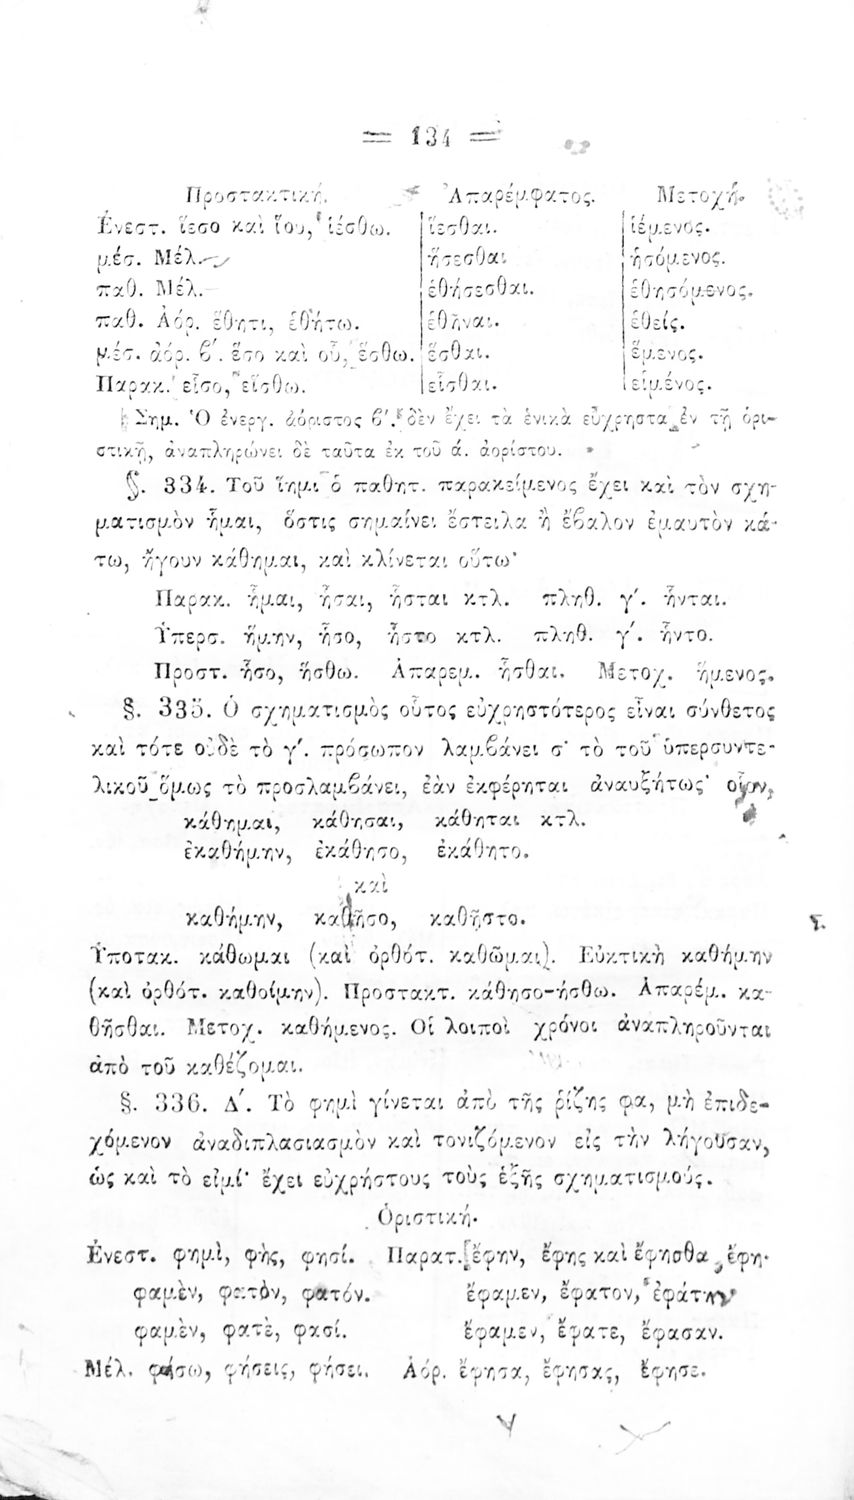 = 134 =
Προστακτική. Ἀπαρέμφατος. Μετοχή.
Ἐνεστ. ἵεσο καὶ ἵου, ἱέσθω. ἵεσθαι. ἱέμενος.
μέσ. Μέλ. ἥσεσθαι ἡσόμενος.
παθ. Μέλ. ἑθήσεσθαι. ἑθησόμενος.
παθ. Ἀόρ. ἕθητι, ἑθήτω. ἑθῆναι. ἑθείς.
μέσ. ἀόρ. β΄. ἕσο καὶ οὗ, ἕσθω. ἕσθαι. ἕμενος.
Παρακ. εἷσο, εἵσθω. εἷσθαι. εἱμένος.
Σημ. Ὁ ἐνεργ. ἀόριστος β΄. δὲν ἔχει τὰ ἑνικὰ εὔχρηστα ἐν τῇ ὁρι-
στικῇ, ἀναπληρώνει δὲ ταῦτα ἐκ τοῦ ά. ἀορίστου.
§. 334. Τοῦ ἵημι ὁ παθητ. παρακείμενος ἔχει καὶ τὸν σχη-
ματισμὸν ἧμαι, ὅστις σημαίνει ἔστειλα ἢ ἔβαλον ἐμαυτὸν κά-
τω, ἤγουν κάθημαι, καὶ κλίνεται οὕτω·
Παρακ. ἧμαι, ἧσαι, ἧσται κτλ. πληθ. γ΄. ἧνται.
Ὑπερσ. ἥμην, ἧσο, ἧστο κτλ. πληθ. γ΄. ἧντο.
Προστ. ἧσο, ἥσθω. Ἀπαρεμ. ἧσθαι. Μετοχ. ἥμενος.
§. 335. Ὁ σχηματισμὸς οὗτος εὐχρηστότερος εἶναι σύνθετος
καὶ τότε οὐδὲ τὸ γ΄. πρόσωπον λαμβάνει σ· τὸ τοῦ ὑπερσυντε-
λικοῦ ὅμως τὸ προσλαμβάνει, ἐὰν ἐκφέρηται ἀναυξήτως· οἷον,
κάθημαι, κάθησαι, κάθηται κτλ.
ἐκαθήμην, ἐκάθησο, ἐκάθητο.
καὶ
καθήμην, καθῆσο, καθῆστο.
Ὑποτακ. κάθωμαι (καὶ ὀρθότ. καθῶμαι). Εὐκτικὴ καθήμην
(καὶ ὀρθότ. καθοίμην). Προστακτ. κάθησο-ήσθω. Ἀπαρέμ. κα-
θῆσθαι. Μετοχ. καθήμενος. Οἱ λοιποὶ χρόνοι ἀναπληροῦνται
ἀπὸ τοῦ καθέζομαι.
§. 336. Δ΄. Τὸ φημὶ γίνεται ἀπὸ τῆς ῥίζης φα, μὴ ἐπιδε-
χόμενον ἀναδιπλασιασμὸν καὶ τονιζόμενον εἰς τὴν λήγουσαν,
ὡς καὶ τὸ εἰμί· ἔχει εὐχρήστους τοὺς ἑξῆς σχηματισμούς.
Ὁριστική.
Ἐνεστ. φημὶ, φὴς, φησί. Παρατ. ἔφην, ἔφης καὶ ἔφησθα, ἔφη·
φαμὲν, φατὸν, φατόν. ἔφαμεν, ἔφατον, ἐφάτην
φαμὲν, φατὲ, φασί. ἔφαμεν, ἔφατε, ἔφασαν.
Μέλ. φήσω, φήσεις, φήσει. Ἀόρ. ἔφησα, ἔφησας, ἔφησε.